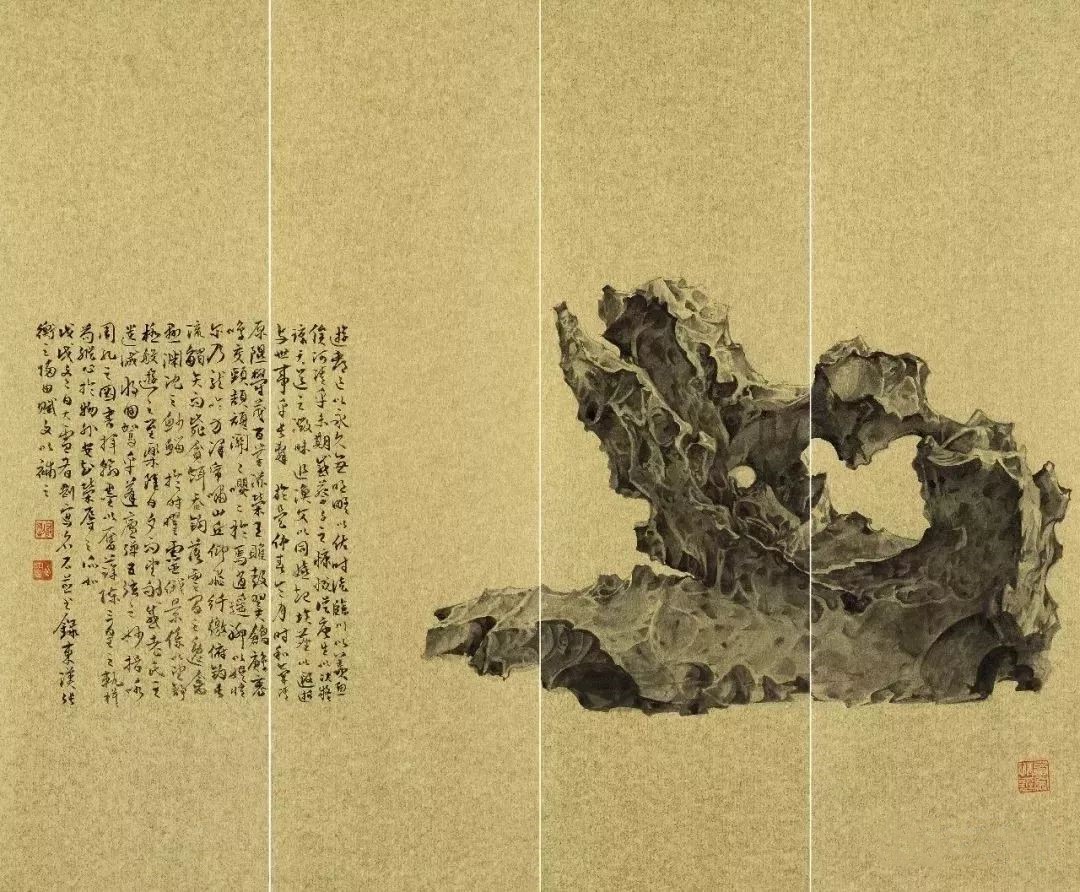 遊都邑以永久無明略以佐时徒臨川以羨魚
俟河清乎未期感蔡子之慷慨從唐生以决疑
諒天道之微昧追漁父以同嬉超埃塵以遐遊
与世事乎長辭於是仲春令月时和氣清
原隰鬱茂百草滋榮王雎鼓翼鶬鶊哀
鳴交頸頡頏關關嚶嚶於焉逍遥聊以娛情
尔乃龍吟方澤虎嘯山丘仰飛纖繳俯釣長
流觸矢而斃貪餌吞鈎落雲間之逸禽
懸渊沉之魦鰡於时曜靈俄景係以望舒
極般遊之至樂雖日夕而忘劬感老氏之
遺誡將回駕乎蓬廬彈五弦之妙指咏
周孔之圖書揮翰墨以奮藻陳三皇之軌模
苟縱心於物外安知榮辱之所如
戊戌冬日大雪寫石並録東漢張
衡之歸田賦文以補之